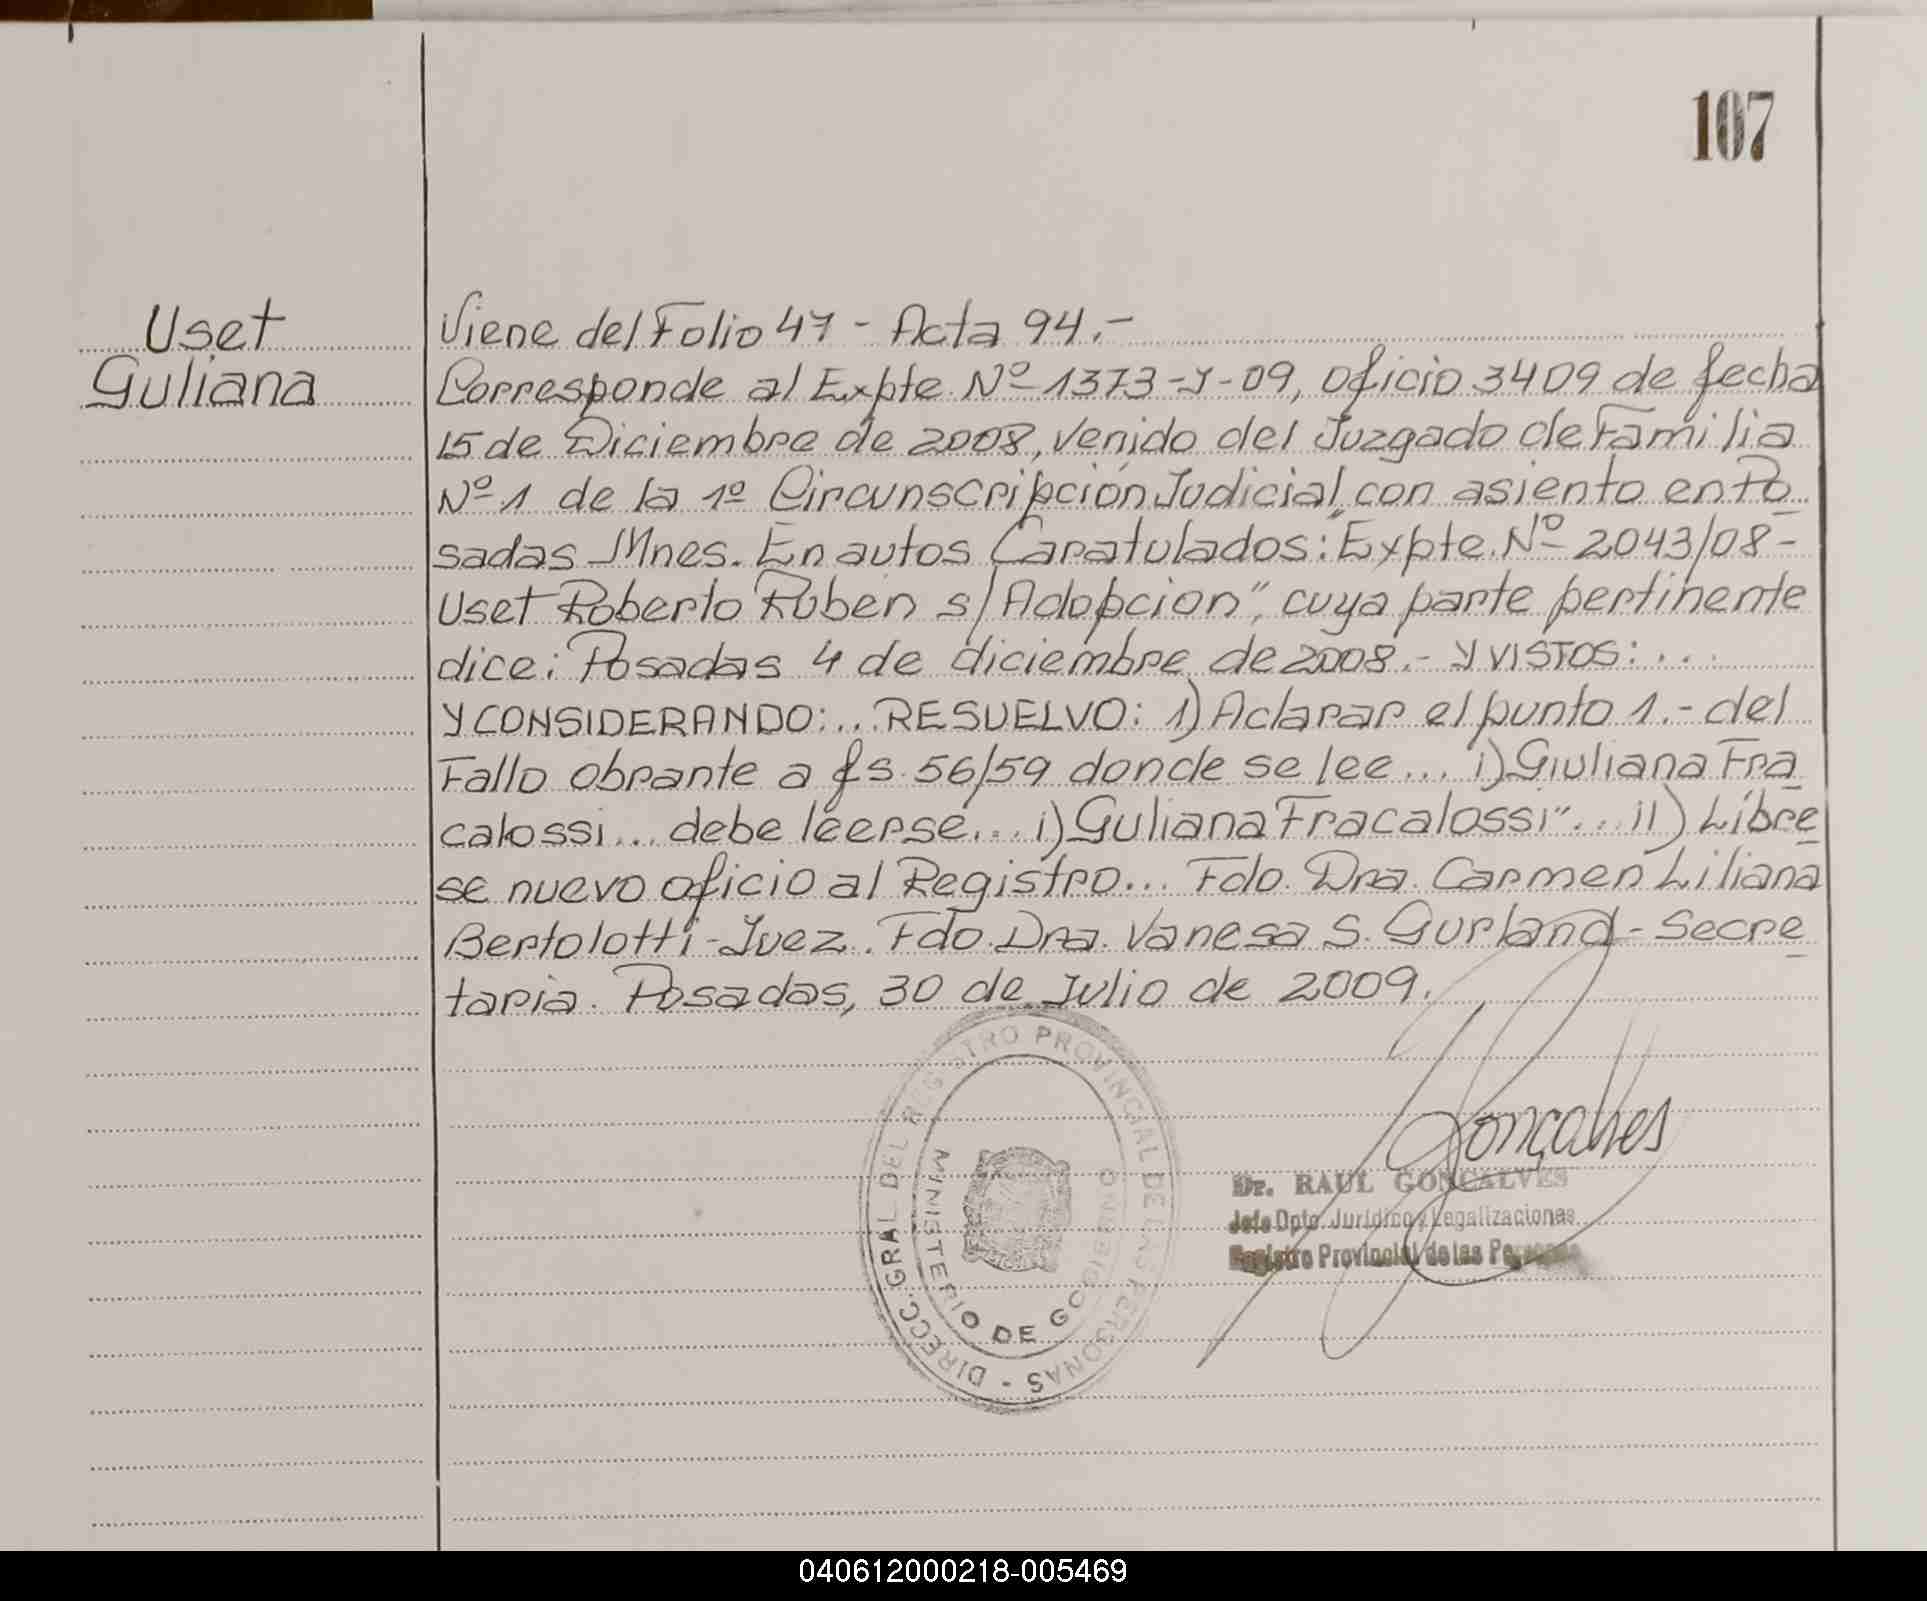 107
Uset
Guliana
Viene del Folio 47 - Acta 94.-
Corresponde al Expte. Nº 1373-J-09, oficio 3409 de fecha
15 de Diciembre de 2008, venido del Juzgado de Familia
Nº 1 de la 1º Circunscripción Judicial, con asiento en Po
sadas Mnes. En autos Caratulados: "Expte. Nº 2043/08-
Uset Roberto Ruben s/ Adopcion", cuya parte pertinente
dice: Posadas 4 de diciembre de 2008.- Y VISTOS: ...
Y CONSIDERANDO: ... RESUELVO: 1) Aclarar el punto 1.- del
Fallo obrante a fs. 56/59 donde se lee... i) Giuliana Fra
calossi... debe leerse... i) Guliana Fracalossi"... ii) Líbre
se nuevo oficio al Registro... Fdo. Dra. Carmen Liliana
Bertolotti - Juez. Fdo. Dra. Vanesa S. Gurland - Secre
taria. Posadas, 30 de Julio de 2009.
DIRECC. GRAL DEL REGISTRO PROVINCIAL DE LAS PERSONAS -
MINISTERIO DE GOBIERNO
Gonçalves
Dr. RAUL GONÇALVES
Jefe Dpto. Jurídico y Legalizaciones
Registro Provincial de las Personas
040612000218-005469